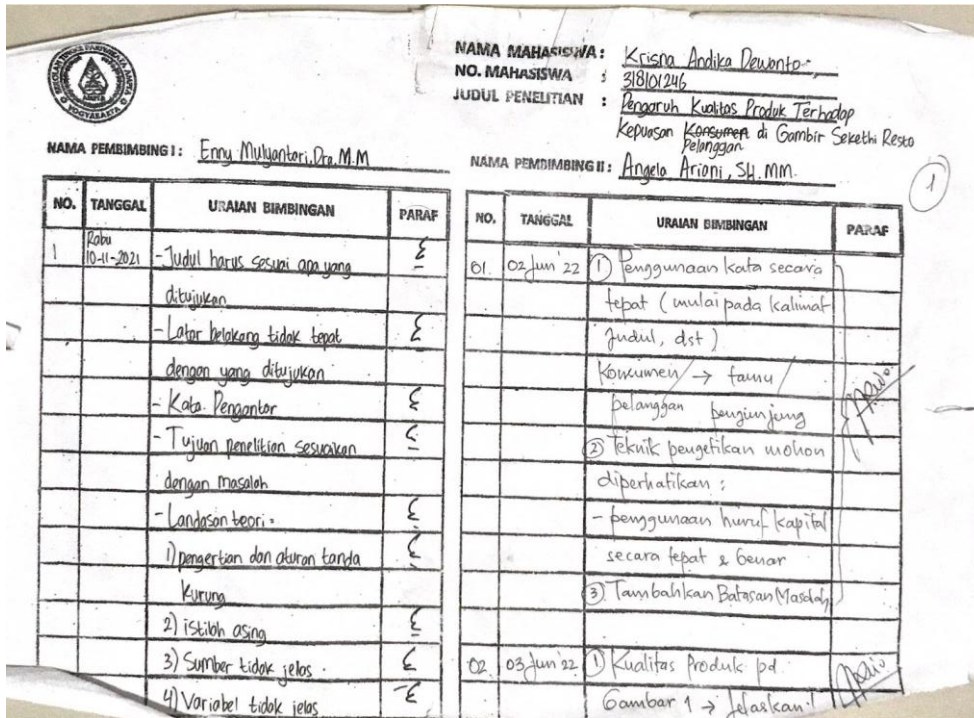 SEKOLAH TINGGI PARIWISATA AMPTA
YOGYAKARTA
NAMA MAHASISWA : Krisna Andika Dewanto
NO. MAHASISWA : 318101246
JUDUL PENELITIAN : Pengaruh Kualitas Produk Terhadap
Kepuasan Konsumen di Gambir Sekethi Resto
Pelanggan
NAMA PEMBIMBING I : Enny Mulyantari, Dra. M.M
NAMA PEMBIMBING II : Angela Ariani, SH. MM.
1
NO. TANGGAL URAIAN BIMBINGAN PARAF
1 Rabu
10-11-2021 - Judul harus sesuai apa yang
ditujukan
- Latar belakang tidak tepat
dengan yang ditujukan
- Kata Pengantar
- Tujuan penelitian sesuaikan
dengan masalah
- Landasan teori :
1) pengertian dan aturan tanda
Kurung
2) istilah asing
3) Sumber tidak jelas .
4) Variabel tidak jelas
NO. TANGGAL URAIAN BIMBINGAN PARAF
01. 02 Jun '22 1 Penggunaan kata secara
tepat ( mulai pada kalimat
Judul, dst )
Konsumen / → tamu /
pelanggan pengunjung
2 Teknik pengetikan mohon
diperhatikan :
- penggunaan huruf kapital
secara tepat & benar
3 Tambahkan Batasan Masalah
02. 03 Jun '22 1 Kualitas Produk pd.
Gambar 1 → jelaskan !